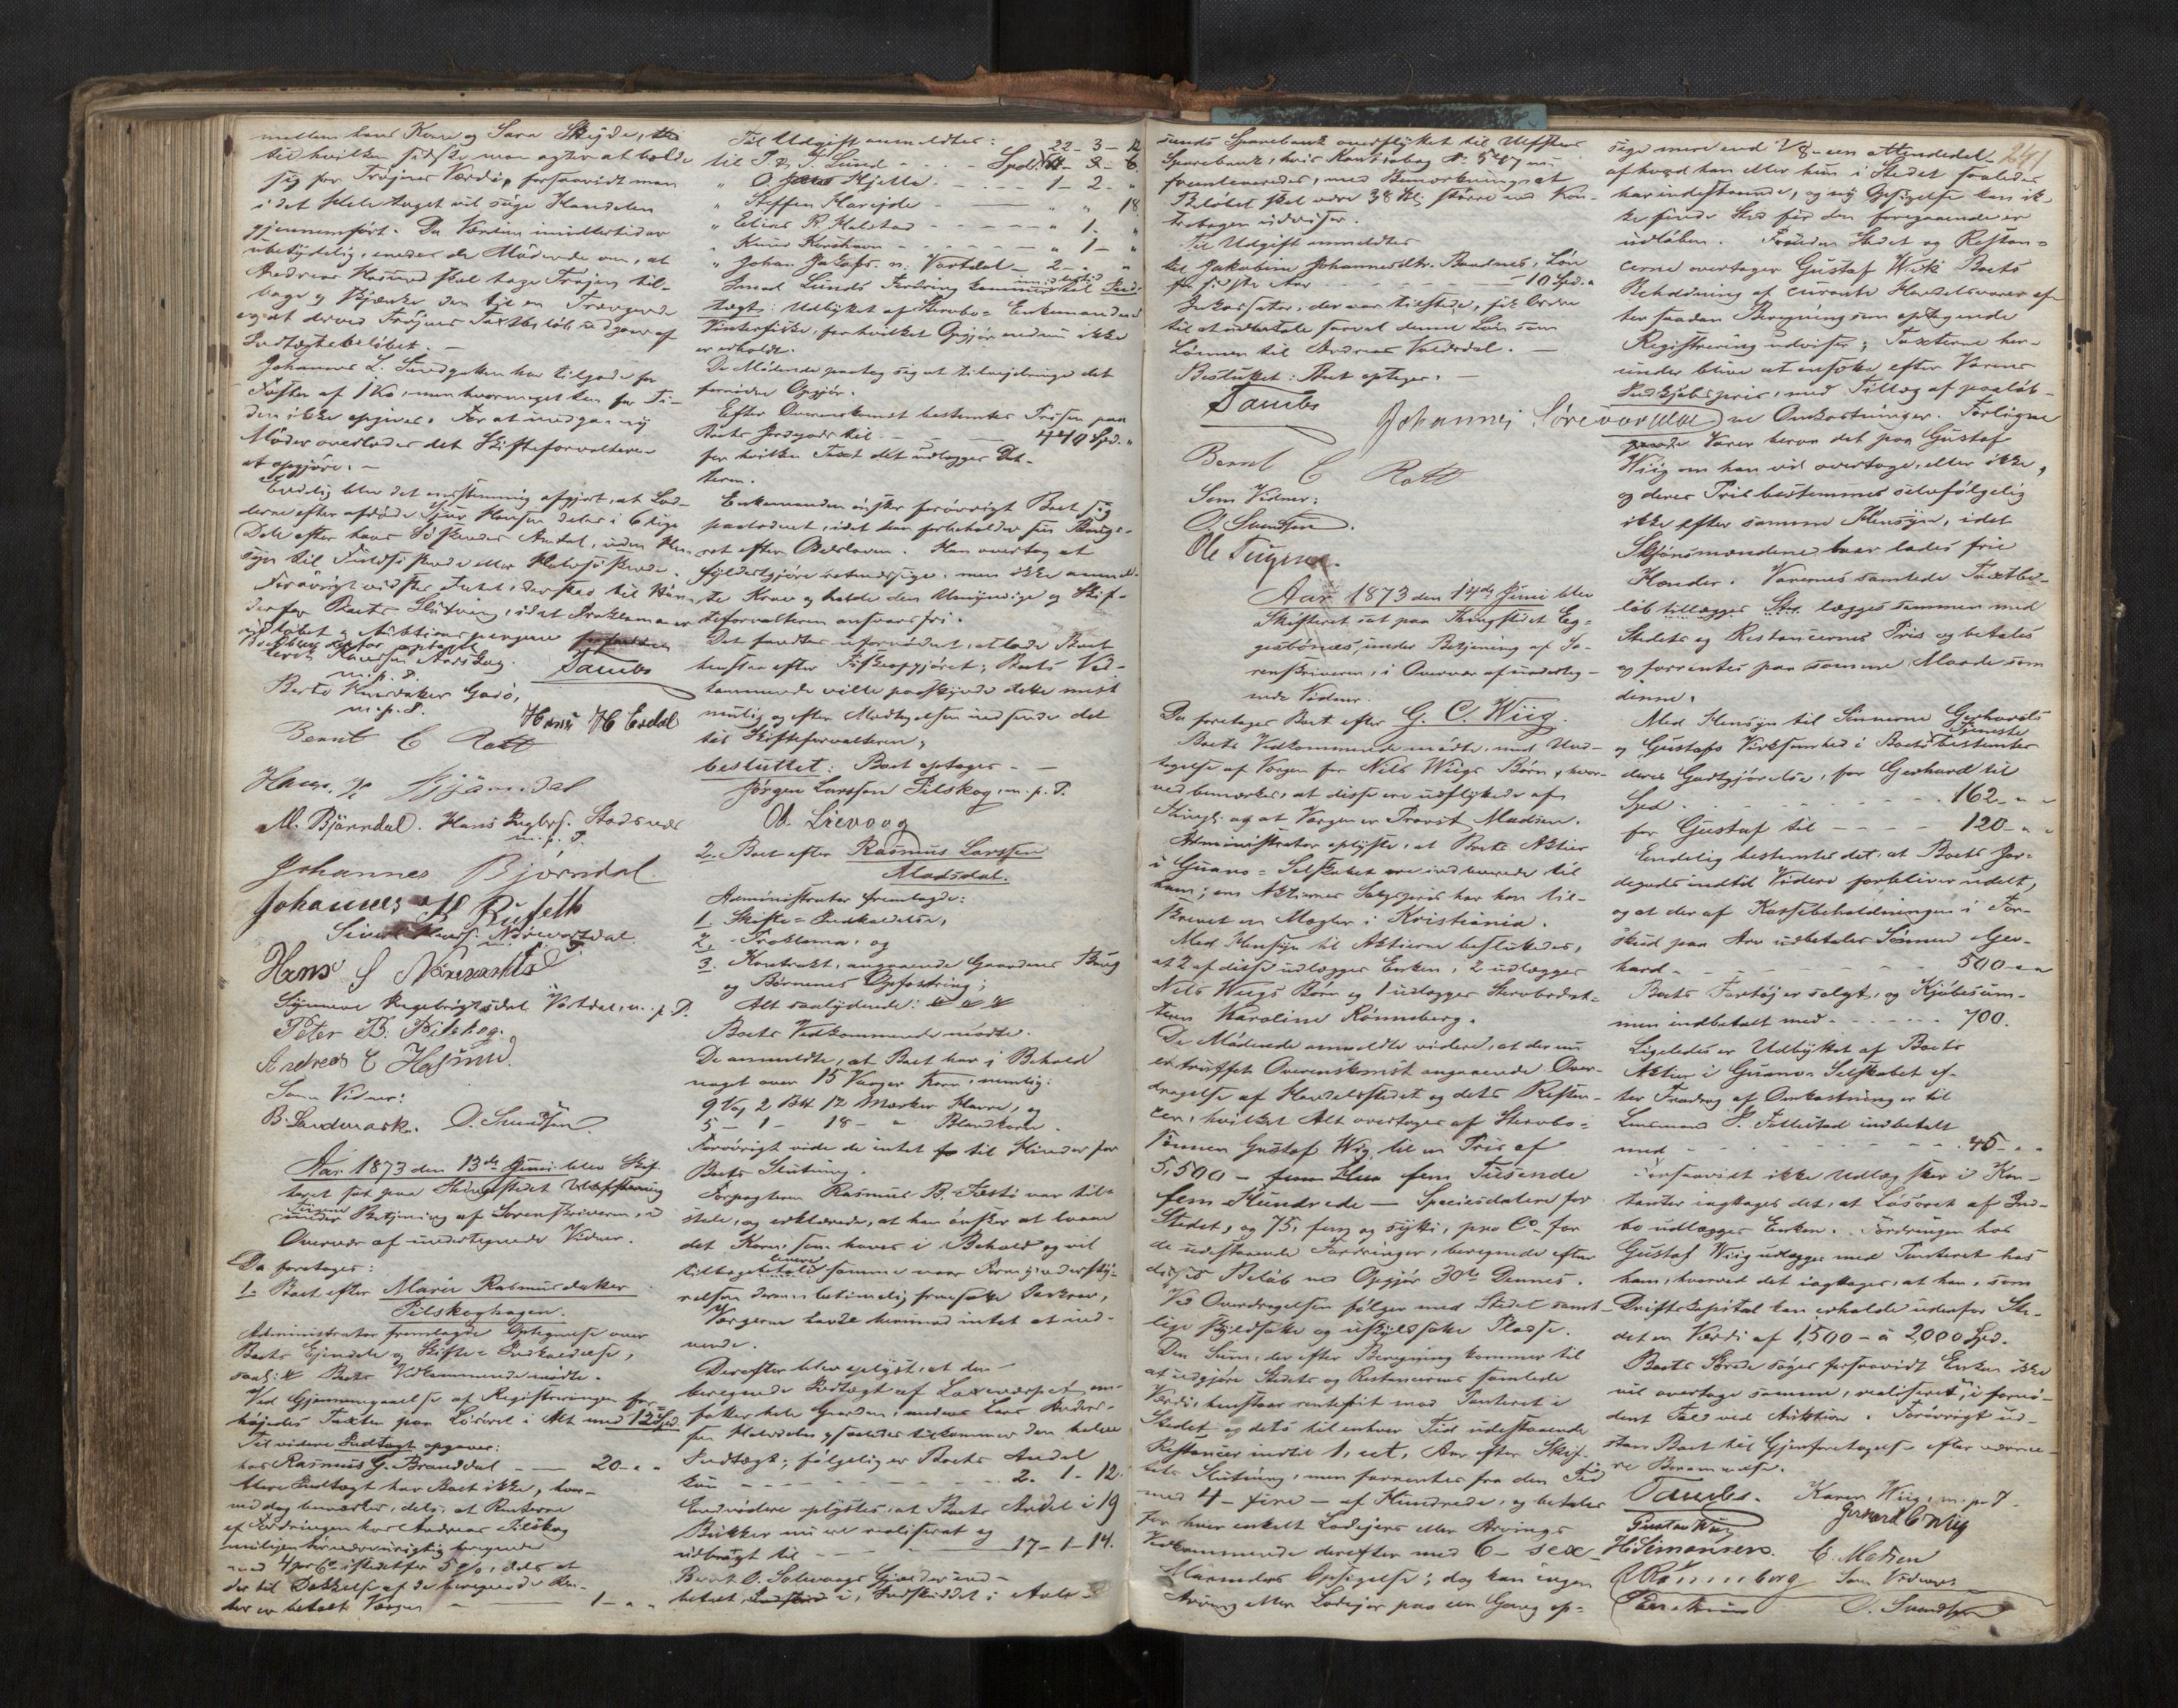 mellem hans Kone og Sara Skeide,
til hvilken sidste man agter at holde
sig for Trøjens Værdi, forsaavidt man
i det Hele taget vil søge Handelen
gjennemført. Da Værdien imidlertid er
ubetydelig, enedes de Mødende om, at
Andreas Hasund skal tage Trøjen til-
bage og skjænke den til en Trængende
og at derved Trøjens Taxtbeløb udgaar af
Indtægtsbeløbet. —
Johannes L. Sundgotten har tilgode for
Foster af 1 Ko, men hvormeget kan for Ti-
den ikke opgives. For at undgaa ny
Møder overlodes det Skifteforvalteren
at opgjøre. —
Endelig blev det enstemmig afgjort, at Lod-
derne efter afdøde Sjur Hansen deles i 6 lige
Dele efter hans Søskendes Antal, uden Hen-
syn til Fuldsøskende eller Halvsøskende.
Forøvrigt vidstes Intet derstod til Hin-
der for Boets Slutning, idet Proklama er
udløbet og Auktionspengene
Boet blev derfor optaget
Knudsen Aarskog
m.p.P.
Sambs
Berte Knudsdatter Godø,
m.p.P.
Hans H Endal
Bernt C Rott
Hans H Bjørndal
M. Bjørndal. Hans Ingbrs. Stadsnes
m.p.P.
Johannes Bjørndal
Johannes H Rusetth
Sivert Hans. Nørevartdal
Hans S Nørevartdal
Synneve Ingebrigtsdtr Vartdal, m.p.P.
Peter B. Pilskog.
Andreas C Hasund.
Som Vidner:
B. Landmark. O. Svendsen
Aar 1873 den 13de Juni blev Skif-
teret sat paa Thingstedet Ulfsten
under Betjening af Sorenskriveren, i
Overvær af undertegnede Vidner.
Da foretoges:
1. Boet efter Maria Rasmusdatter
Pilskoghagen.
Administrator fremlagde Optegnelse over
Boets Ejendele og Skifte-Indkaldelse,
saal: Boets Vedkommende mødte.
Ved Gjennemgaaelse af Registreringen for-
højedes Taxten paa Løsøret i Alt med 12 Spd.
Til videre Indtægt opgaves:
hos Rasmus G. Branddal — 20 - " "
Mere Indtægt har Boet ikke, hvor-
ved dog bemærkes, dels, at Renterne
af Fordringen hos Andreas Pilskog
muligens ere urigtig beregnede
med 4 pro Co istedetfor 5 %, dels at
der til Dækkelse af de beregnede Ren-
ter er betalt Vaagen — 1 - " "
Til Udgift anmeldtes: 22 - 3 - 12
til I. & I. Lund - - - Spd.
" O. Hjelle - - - 1 - 2 - "
" Steffen Hareide - - " " 18
" Elias R. Halstad - - - " 1. "
" Knud Kornhavn - - - - " 1 - "
" Johan Jakobs. n. Vartdal — 2 - " "
Imod Lunds Fordring kommer imidlertid til Ind-
tægt: Udbyttet af Sterbo-Enkemandens
Vinterfiske, forhvilket Opgjør endnu ikke
er erholdt.
De Mødende paatog sig at tilvejebringe det
fornødne Opgjør.
Efter Overenskomst bestemtes Prisen paa
Boets Jordegods til - - - 440 Spd. "
for hvilken Taxt det udlægges Dat-
teren.
Enkemanden ønsker forøvrigt Boet sig
paalodnet, idet han forbeholder sin Brugs-
ret efter Odelsloven. Han overtog at
fyldestgjøre retmæssige, men ikke anmeld-
te Krav og holde den Umyndige og Skif-
teforvalteren ansvarsfri.
Det fandtes ufornødent, at lade Boet
henstaa efter Fiskeopgjøret; Boets Ved-
kommende ville paaskynde dette mest
mulig og efter Modtagelsen indsende det
til Skifteforvalteren;
besluttet: Boet optages — —
Jørgen Larssen Pilskog, m.p.P.
Ol. Lievoog
2. Boet efter Rasmus Larssen
Madsdal.
Administrator fremlagde:
1. Skifte-Indkaldelse,
2. Proklama, og
3. Kontrakt, angaaende Gaardens Brug
og Børnenes Opfostring;
Alt saalydende:
Boets Vedkommende mødte.
De anmeldte, at Boet har i Behold
noget over 15 Vaager Korn, nemlig:
9 Vog 2 Bpd 12 Marker Havre, og
5 — 1 — 18 — " Blandkorn.
Forøvrigt vide de intet til Hinder for
Boets Slutning.
Forpagteren Rasmus B. Fæste var til-
stede, og erklærede, at han ønsker at laane
det Korn som haves i Behold og vil
tilbagelevere samme naar Formynderskabet
Værgerne havde hermed intet at ind-
vende.
Derefter blev oplyst, at den
beregnede Indtægt af Laxevarpet om-
fatter hele Gaarden, medens Lars Anders-
sen Madsdal ogsaa tilkommer den halve
Indtægt; følgelig er Boets Andel
kun - - - - - - - 2. 1 - 12.
Endvidere oplystes, at Boets Andel i 19
Bukker nu er realiseret og
udbragt til - - - - - 17 - 1 - 14.
Bernt O. Solevaags Gjæld er ind-
betalt, i, Indskuddet i Aale-
sunds Sparebank overflyttet til Ulfstens
Sparebank, hvis Kontrabog No. 547 nu
fremleveredes, med Bemærkning at
Beløbet skal være 38 ß større end Kon-
trabogen udviser.
Til Udgift anmeldtes
til Jakobine Johannesdtr. Boadnes, Løn
for sidste Aar - - - - 10 Spd. "
Inkassator, der var tilstede, fik Ordre
til at udbetale saavel denne Løn som
Lønnen til Andreas Valderdal. —
Besluttet: Boet optages. —
Sambs
Johannes Sørevartdal
Bernt C Rott
Som Vidner:
O. Svendsen.
Ole Tusvik.
Aar 1873 den 14de Juni blev
Skifteret sat paa Thingstedet Eg-
gesbønæs, under Betjening af So-
renskriveren, i Overvær af underteg-
nede Vidner.
Da foretoges Boet efter G. C. Wiig.
Boets Vedkommende mødte, med Und-
tagelse af Værgen for Nils Wiigs Børn, hvor-
ved bemærkes, at disse ere udflyttede af
Thingl. og at Værgen er Provst Madsen.
Administrator oplyste, at Boets Aktier
i Guano-Selskabet ere indleverede til
ham; om Aktiernes Salgspris har han til-
skrevet en Mægler i Kristiania.
Med Hensyn til Aktierne besluttedes,
at 2 af disse udlægges Enken, 2 udlægges
Nils Wiigs Børn og 1 udlægges Sterbodat-
teren Karoline Rønneberg.
De Mødende anmeldte videre, at der nu
er truffet Overenskomst angaaende Over-
dragelse af Handelsstedet og dets Restan-
cer, hvilket Alt overtages af Sterbo-
sønnen Gustaf Wiig til en Pris af
5,500 — fem Tusende
fem Hundrede — Speciesdalere for
Stedet, og 75, fem og sytti, pro Co for
de udestaaende Fordringer, beregnede efter
disses Beløb ved Opgjør 30te Dennes.
Ved Overdragelsen følger med Stedet samt-
lige skyldsatte og uskyldsatte Pladse.
Den Sum, der efter Beregning kommer til
at udgjøre Stedets og Restancernes samlede
Værdi, henstaar rentefrit mod Panteret i
Stedet og dets til enhver Tid udestaaende
Restancer indtil 1, eet, Aar efter Skif-
tets Slutning, men forrentes fra den Tid
med 4 — fire — af Hundrede, og betales
for hver enkelt Lodejers eller Arvings
Vedkommende derefter med 6 — sex
Maaneders Opsigelse; dog kan ingen
Arving eller Lodejer paa een Gang op-
241
sige mere end 1/8 — en Ottendedel
af hvad han eller hun i Stedet saaledes
har indestaaende, og ny Opsigelse kan ik-
ke finde Sted før den foregaaende er
udløben. Foruden Stedet og Restan-
cerne overtager Gustaf Wiig Boets
Beholdning af curante Handelsvarer ef-
ter saadan Beregning som optagende
Registrering udviser; Taxterne her-
under blive at ansætte efter Varens
Indkjøbspris, med Tillæg af paaløb-
ne Omkostninger. Forliggende
Varer beror det paa Gustaf
Wiig om han vil overtage, eller ikke,
og deres Pris bestemmes selvfølgelig
ikke efter samme Hensyn, idet
Skjønsmændene har lades frie
Hænder. Varernes samlede Taxtbe-
løb lægges sammen med
Stedets og Restancernes Pris og betales
og forrentes paa samme Maade som
denne.
Med Hensyn til Sønnerne Gerhards
og Gustafs Virksomhed i Boets Tjeneste bestemtes
deres Godtgjørelse, for Gerhard til
Spd. - - - - - - 162 - " "
for Gustaf til — - - - 120 - " "
Endelig bestemtes det, at Boets Jor-
degods indtil Videre forbliver udelt,
og at der af Kassebeholdningen i For-
skud paa Arv udbetales Sønnen Ger-
hard - - - - - - - 500 - " "
Boets Fartøj er solgt, og Kjøbesum-
men indbetalt med - - - - 700.
Ligeledes er Udbyttet af Boets
Aktier i Guano-Selskabet ef-
ter Fradrag af Omkostninger til
Lensmand S. Fillestad indbetalt
med - - - - - - - 45 - "
Forsaavidt ikke Udlæg sker i Kon-
tanter iagttages det, at Løsøret af Ind-
bo udlægges Enken. Fordringen hos
Gustaf Wiig udlægges med Panteret hos
ham, hvorved det iagttages, at han, som
Driftskapital kan erholde udenfor Ste-
det en Værdi af 1,500 — à 2,000 Spd.
Boets Korn søges forsaavidt Enken ikke
vil overtage samme, realiseret, i fornø-
dent Fald ved Auktion. Forøvrigt ud-
staar Boet til Gjenforetagelse efter nærme-
re Berammelse.
Sambs. Karen Wiig, m.p.P.
Gustav Wiig Gerhard C Wiig
H. Simonsen. C. Madsen
C Rønneberg Som Vidner:
O. Svendsen